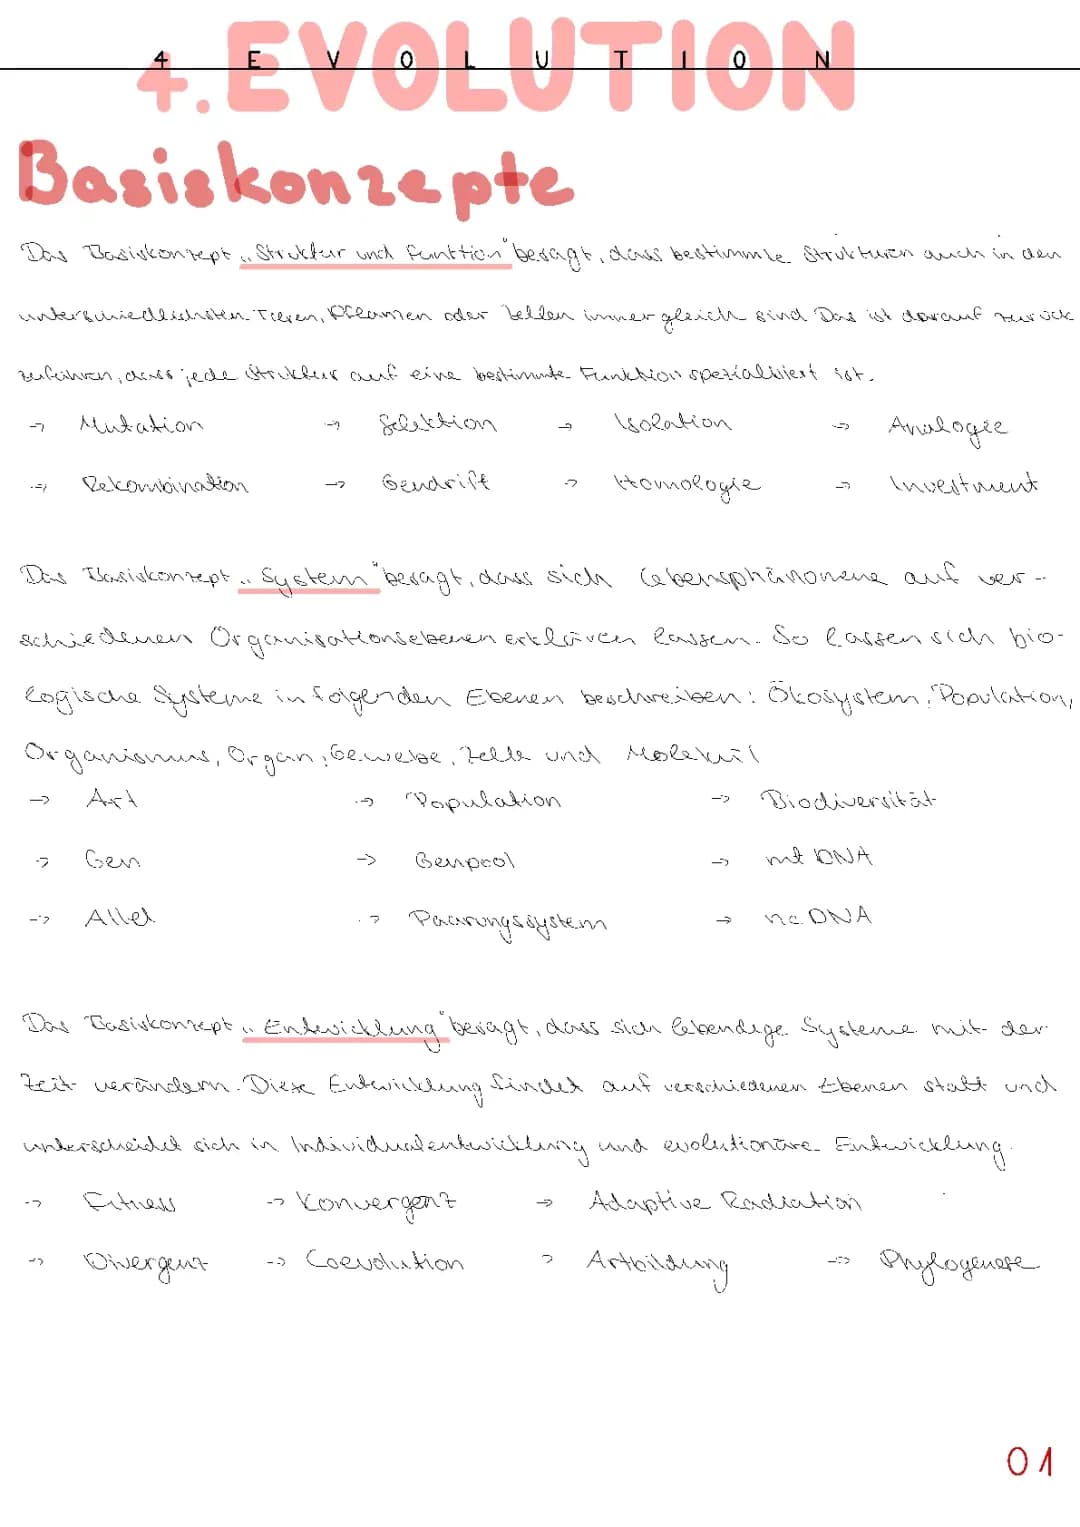 4 E V O L U T I O N
4. EVOLUTION
Basiskonzepte
Das Basiskonzept „Struktur und Funktion" besagt, dass bestimmte Strukturen auch in den
unterschiedlichsten Tieren, Pflanzen oder Zellen immer gleich sind Das ist darauf zurück
zuführen, dass jede Struktur auf eine bestimmte Funktion spezialisiert ist.
→ Mutation → Selektion → Isolation → Analogie
→ Rekombination → Gendrift → Homologie → Investment
Das Basiskonzept „System" besagt, dass sich Lebensphänomene auf ver-
schiedenen Organisationsebenen erklären lassen. So lassen sich bio-
logische Systeme in folgenden Ebenen beschreiben: Ökosystem, Population,
Organismus, Organ, Gewebe, Zelle und Molekül
→ Art → Population → Biodiversität
→ Gen → Genpool → mt DNA
→ Allel → Paarungssystem → nc DNA
Das Basiskonzept „Entwicklung" besagt, dass sich lebendige Systeme mit der
Zeit verändern. Diese Entwicklung findet auf verschiedenen Ebenen statt und
unterscheidet sich in Individualentwicklung und evolutionäre Entwicklung.
→ Fitness → Konvergenz → Adaptive Radiation
→ Divergenz → Coevolution → Artbildung → Phylogenese
01